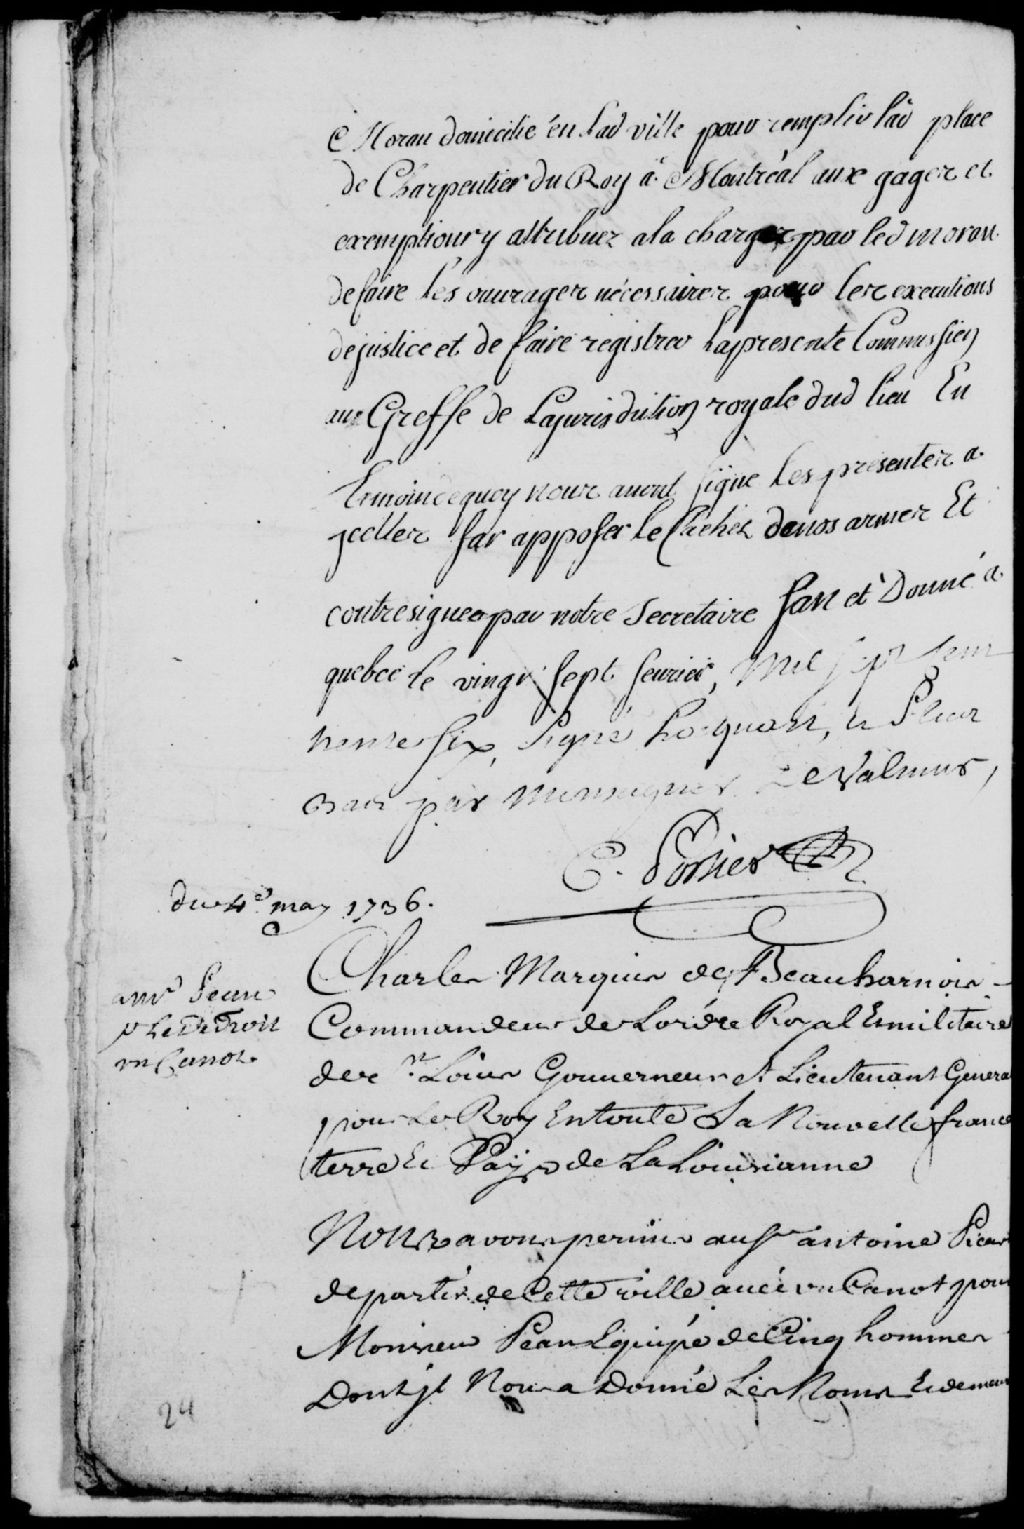 Moran domicilié en lad ville pour remplir lad place
de Charpentier du Roy a Montréal aux gages et
exemptions y attribuez a la charge par led moran
de faire les ouvrages nécessaires pour les executions
de justice et de faire registrer la presente Commission
au Greffe de la jurisdiction royale dud lieu En
temoin de quoy nous avons signé les presentes a
icelles fait apposer le Cachet de nos armes Et
contresigner par notre Secretaire fait et Donné a
quebec le vingt sept fevrier, mil sept cent
trente six, Signé hocquart, et Plus
bas par monseigneur De Valmur,
C. Porlier
du 4e may 1736.
a mr Pean
p Le Détroit
un Canot.
Charles Marquis de Beauharnois
Commandeur de Lordre Royal Et militaire
de st Louis Gouverneur et Lieutenant General
pour Le Roy En toute La Nouvelle france
terre Et Pays de La Louisianne
Nous avons permis au sr antoine
de partir de Cette ville avec un Canot pour
Monsieur Pean Equipé de Cinq hommes
Dont jl Nous a Donné Les Noms Et demeure
24